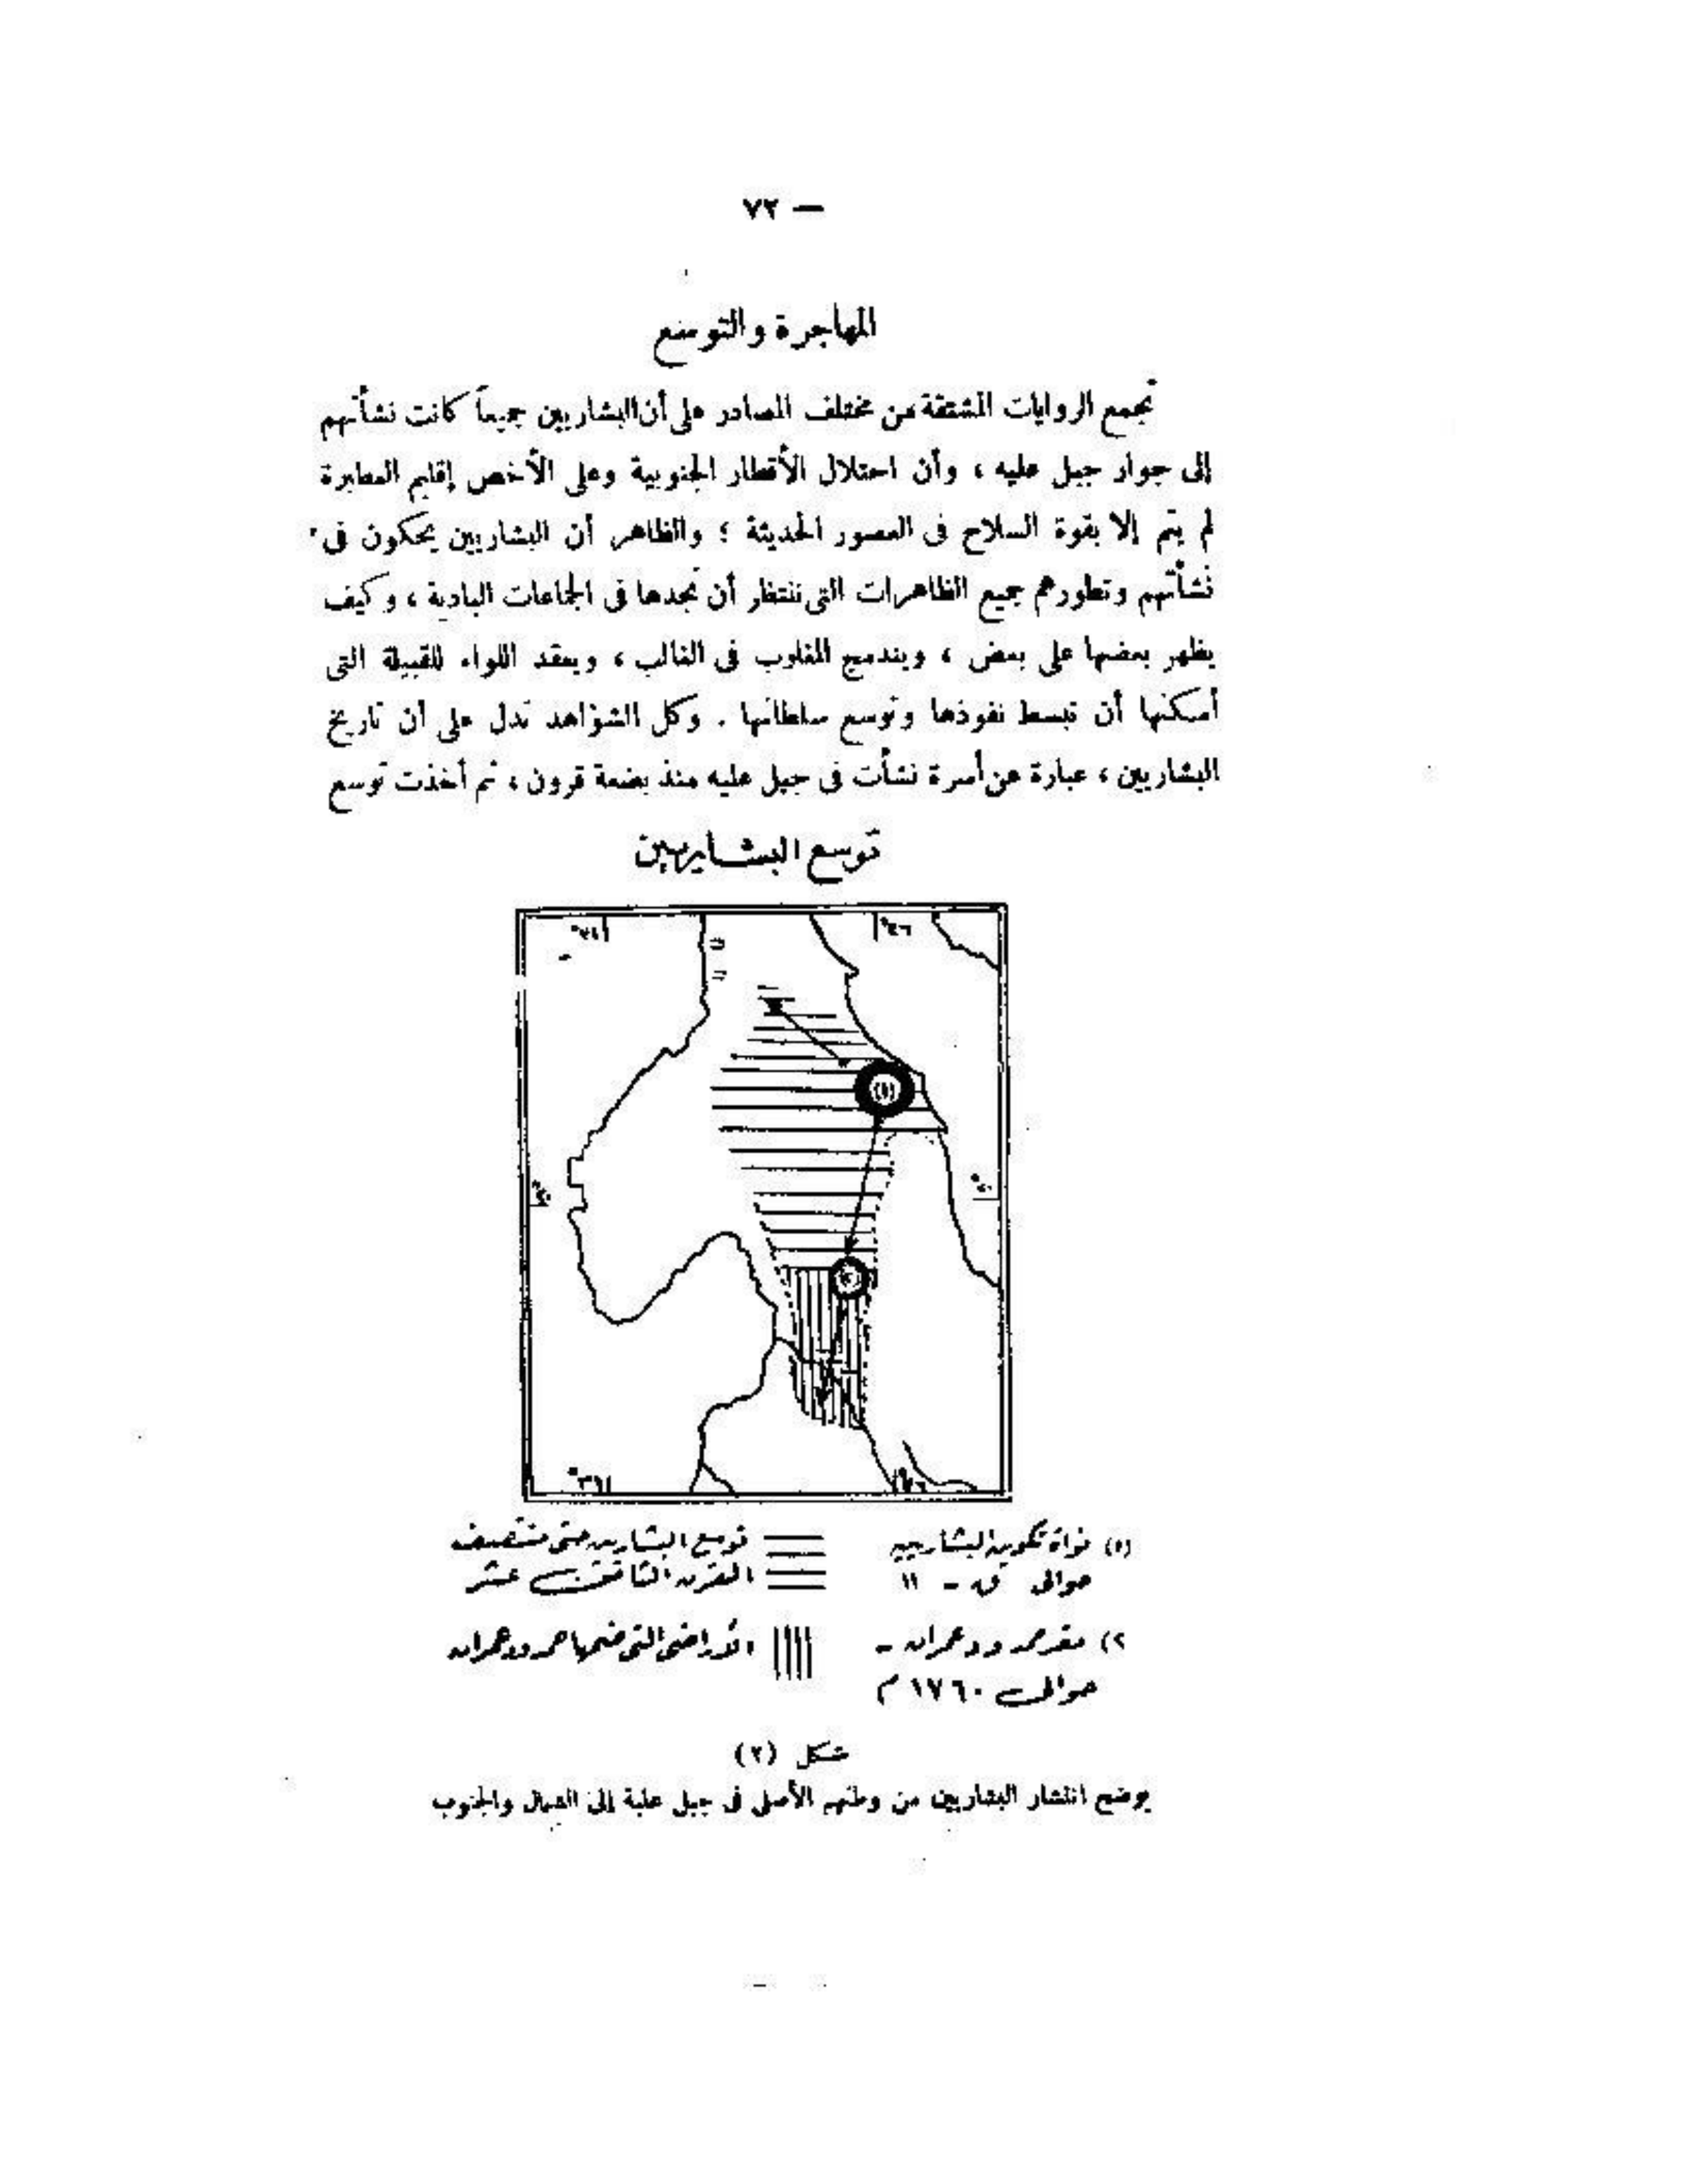 — ٧٢
المهاجرة والتوسع
تجمع الروايات المشتقة من مختلف المصادر على أن البشاريين جميعاً كانت نشأتهم
إلى جوار جبل عليه ، وأن احتلال الأقطار الجنوبية وعلى الأخص إقليم العطبرة
لم يتم إلا بقوة السلاح فى العصور الحديثة ؛ والظاهر أن البشاريين يحكون فى
نشأتهم وتطورهم جميع الظاهرات التى ننتظر أن نجدها فى الجماعات البادية ، وكيف
يظهر بعضها على بعض ، ويندمج المغلوب فى الغالب ، ويعقد اللواء للقبيلة التى
أمكنها أن تبسط نفوذها وتوسع سلطانها . وكل الشواهد تدل على أن تاريخ
البشاريين ، عبارة عن أسرة نشأت فى جبل عليه منذ بضعة قرون ، ثم أخذت توسع
توسع البشاريين
(١)
(١) نواة تكوين البشاريين
حوالى ق - ١١
توسع البشاريين حتى منتصف
القرن الثامن عشر
٢) مقر حمد ود عمران -
حوالى ١٧٦٠ م
الأراضى التى ضمها حمد ود عمران
شكل (٢)
يوضح انتشار البشاريين من وطنهم الأصلى فى جبل علبة إلى الشمال والجنوب